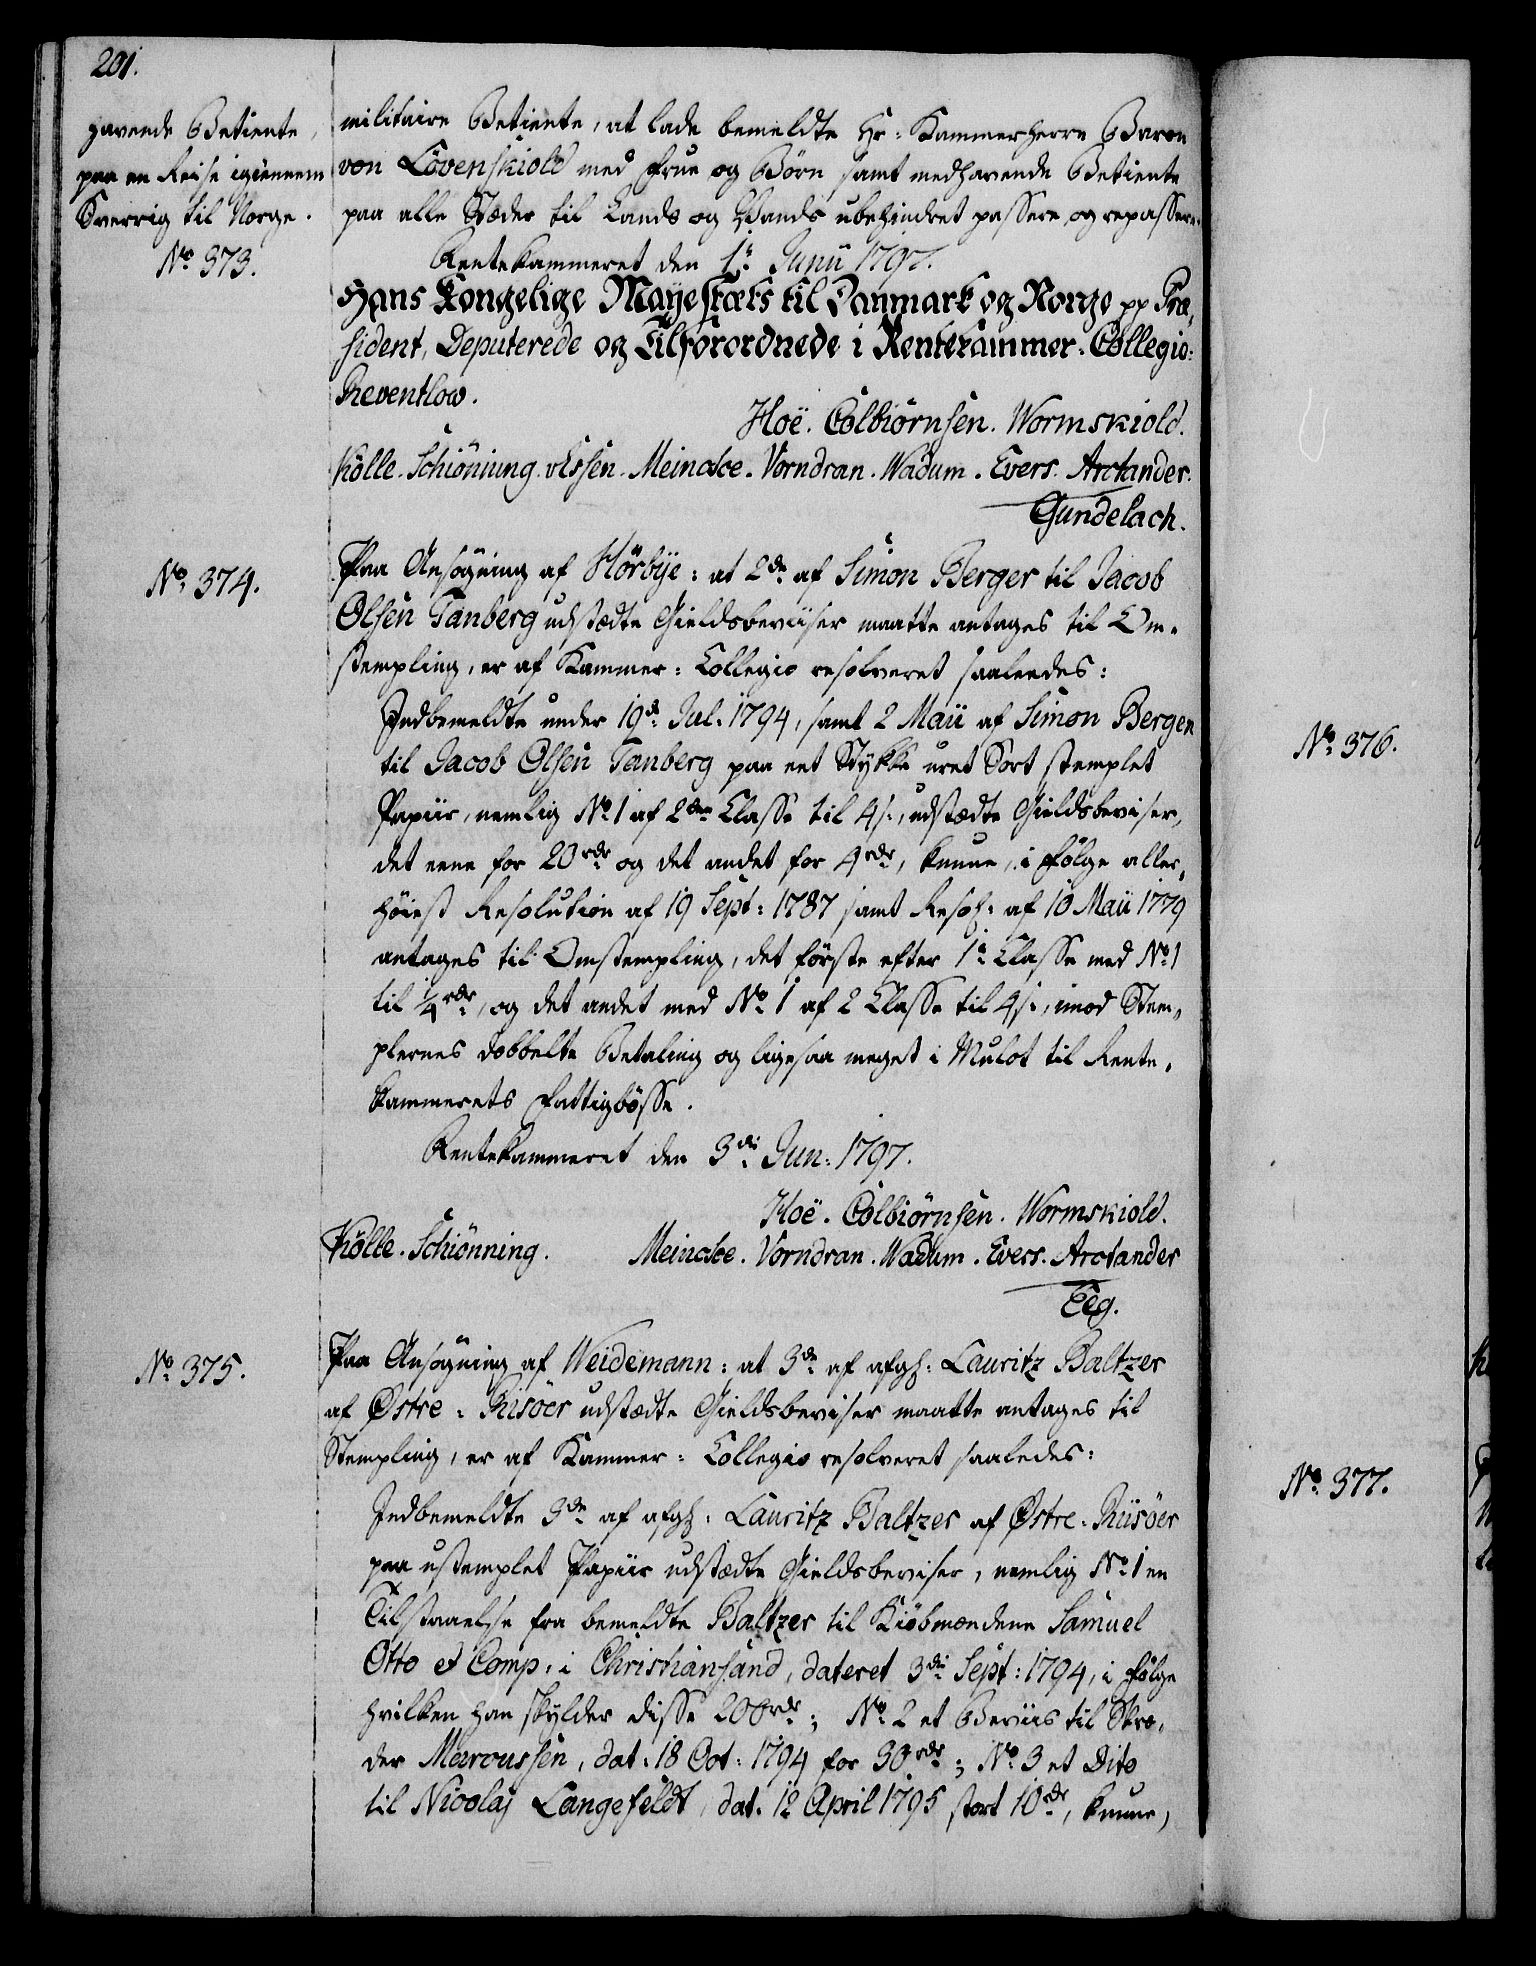 201.
havende Betiente,
paa en Reise igiennem
Sverrig til Norge.
No 373.
militaire Betiente, at lade bemeldte Hr: Kammerherre Baron
von Lövenskiold med Frue og Börn samt medhavende Betiente
paa alle Stæder til Lands og Vands ubehindret passere og repassere.
Rentekammeret den 1te Junii 1797.
Hans Kongelige Mayestæts til Danmark og Norge pp Præ-
sident, Deputerede og Tilforordnede i Rentekammer-Collegio:
Reventlow.
Hoë. Colbiörnsen. Wormskiold.
Kölle. Schiönning. vEssen. Meincke. Vorndran. Wadum. Evers. Arctander.
Gundelach.
No 374.
Paa Ansögning af Hörbye: at 2de af Simon Berger til Jacob
Olsen Tanberg udstædte Gieldsbeviiser maatte antages til Om-
stempling, er af Kammer-Collegio resolveret saaledes:
Indbemeldte under 19de Jul. 1794, samt 2 Maii af Simon Berger
til Jacob Olsen Tanberg paa eet Stykke uret Sort stemplet
Papiir, nemlig No 1 af 2den Classe til 4 s., udstædte Gieldsbeviser,
det eene for 20 rdr og det andet for 4 rdr, kunne, i Fölge aller-
höiest Resolution af 19 Sept: 1787 samt Resol: af 10 Maii 1779
antages til Omstempling, det förste efter 1te Classe med No 1
til 1/4 rdr, og det andet med No 1 af 2 Classe til 4 s., imod Stem-
plernes dobbelte Betaling og ligesaa meget i Mulct til Rente-
kammerets Fattigbösse.
Rentekammeret den 3die Jun: 1797.
Hoë. Colbiörnsen. Wormskiold.
Kölle. Schiönning. Meincke. Vorndran. Wadum. Evers. Arctander
Eeg.
No 375.
Paa Ansögning af Weidemann: at 3de af afgh: Lauritz Baltzer
af Østre-Riisöer udstædte Gieldsbeviser maatte antages til
Stempling, er af Kammer-Collegio resolveret saaledes:
Indbemeldte 3de af afgh: Lauritz Baltzer af Østre-Riisöer
paa ustemplet Papiir udstædte Gieldsbeviser, nemlig No 1 en
Tilstaaelse fra bemeldte Baltzer til Kiöbmændene Samuel
Otto et Comp. i Christiansand, dateret 3die Sept: 1794, i Fölge
hvilken han skylder disse 200 rdr; No 2 et Beviis til Skræ-
der Marcussen, dat: 18 Oct: 1794 for 30 rdr; No 3 et Dito
til Nicolaj Langefeldt, dat. 12 April 1795 stort 10 rdr, kunne,
No 376.
No 377.